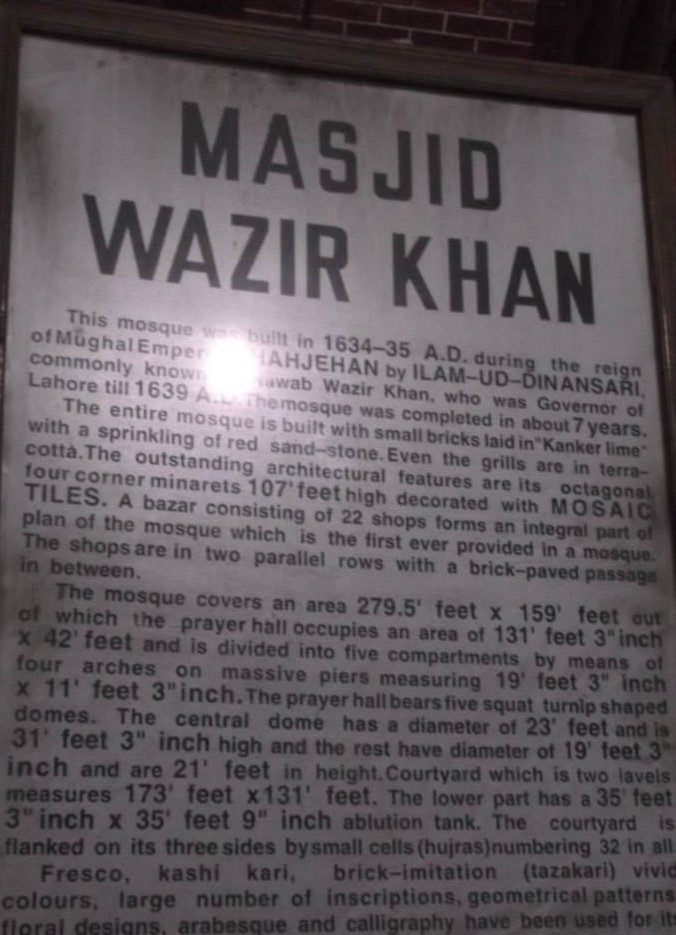 MASJID
WAZIR KHAN
This mosque was built in 1634–35 A.D. during the reign
of Mughal Emper HAHJEHAN by ILAM–UD–DIN ANSARI,
commonly known awab Wazir Khan, who was Governor of
Lahore till 1639 A. The mosque was completed in about 7 years.
The entire mosque is built with small bricks laid in "Kanker lime"
with a sprinkling of red sand–stone. Even the grills are in terra–
cotta. The outstanding architectural features are its octagonal
four corner minarets 107' feet high decorated with MOSAIC
TILES. A bazar consisting of 22 shops forms an integral part of
plan of the mosque which is the first ever provided in a mosque.
The shops are in two parallel rows with a brick–paved passage
in between.
The mosque covers an area 279.5' feet x 159' feet out
of which the prayer hall occupies an area of 131' feet 3" inch
x 42' feet and is divided into five compartments by means of
four arches on massive piers measuring 19' feet 3" inch
x 11' feet 3" inch. The prayer hall bears five squat turnip shaped
domes. The central dome has a diameter of 23' feet and is
31' feet 3" inch high and the rest have diameter of 19' feet 3"
inch and are 21' feet in height. Courtyard which is two lavels
measures 173' feet x 131' feet. The lower part has a 35' feet
3" inch x 35' feet 9" inch ablution tank. The courtyard is
flanked on its three sides by small cells (hujras) numbering 32 in all
Fresco, kashi kari, brick–imitation (tazakari) vivid
colours, large number of inscriptions, geometrical patterns
floral designs, arabesque and calligraphy have been used for its